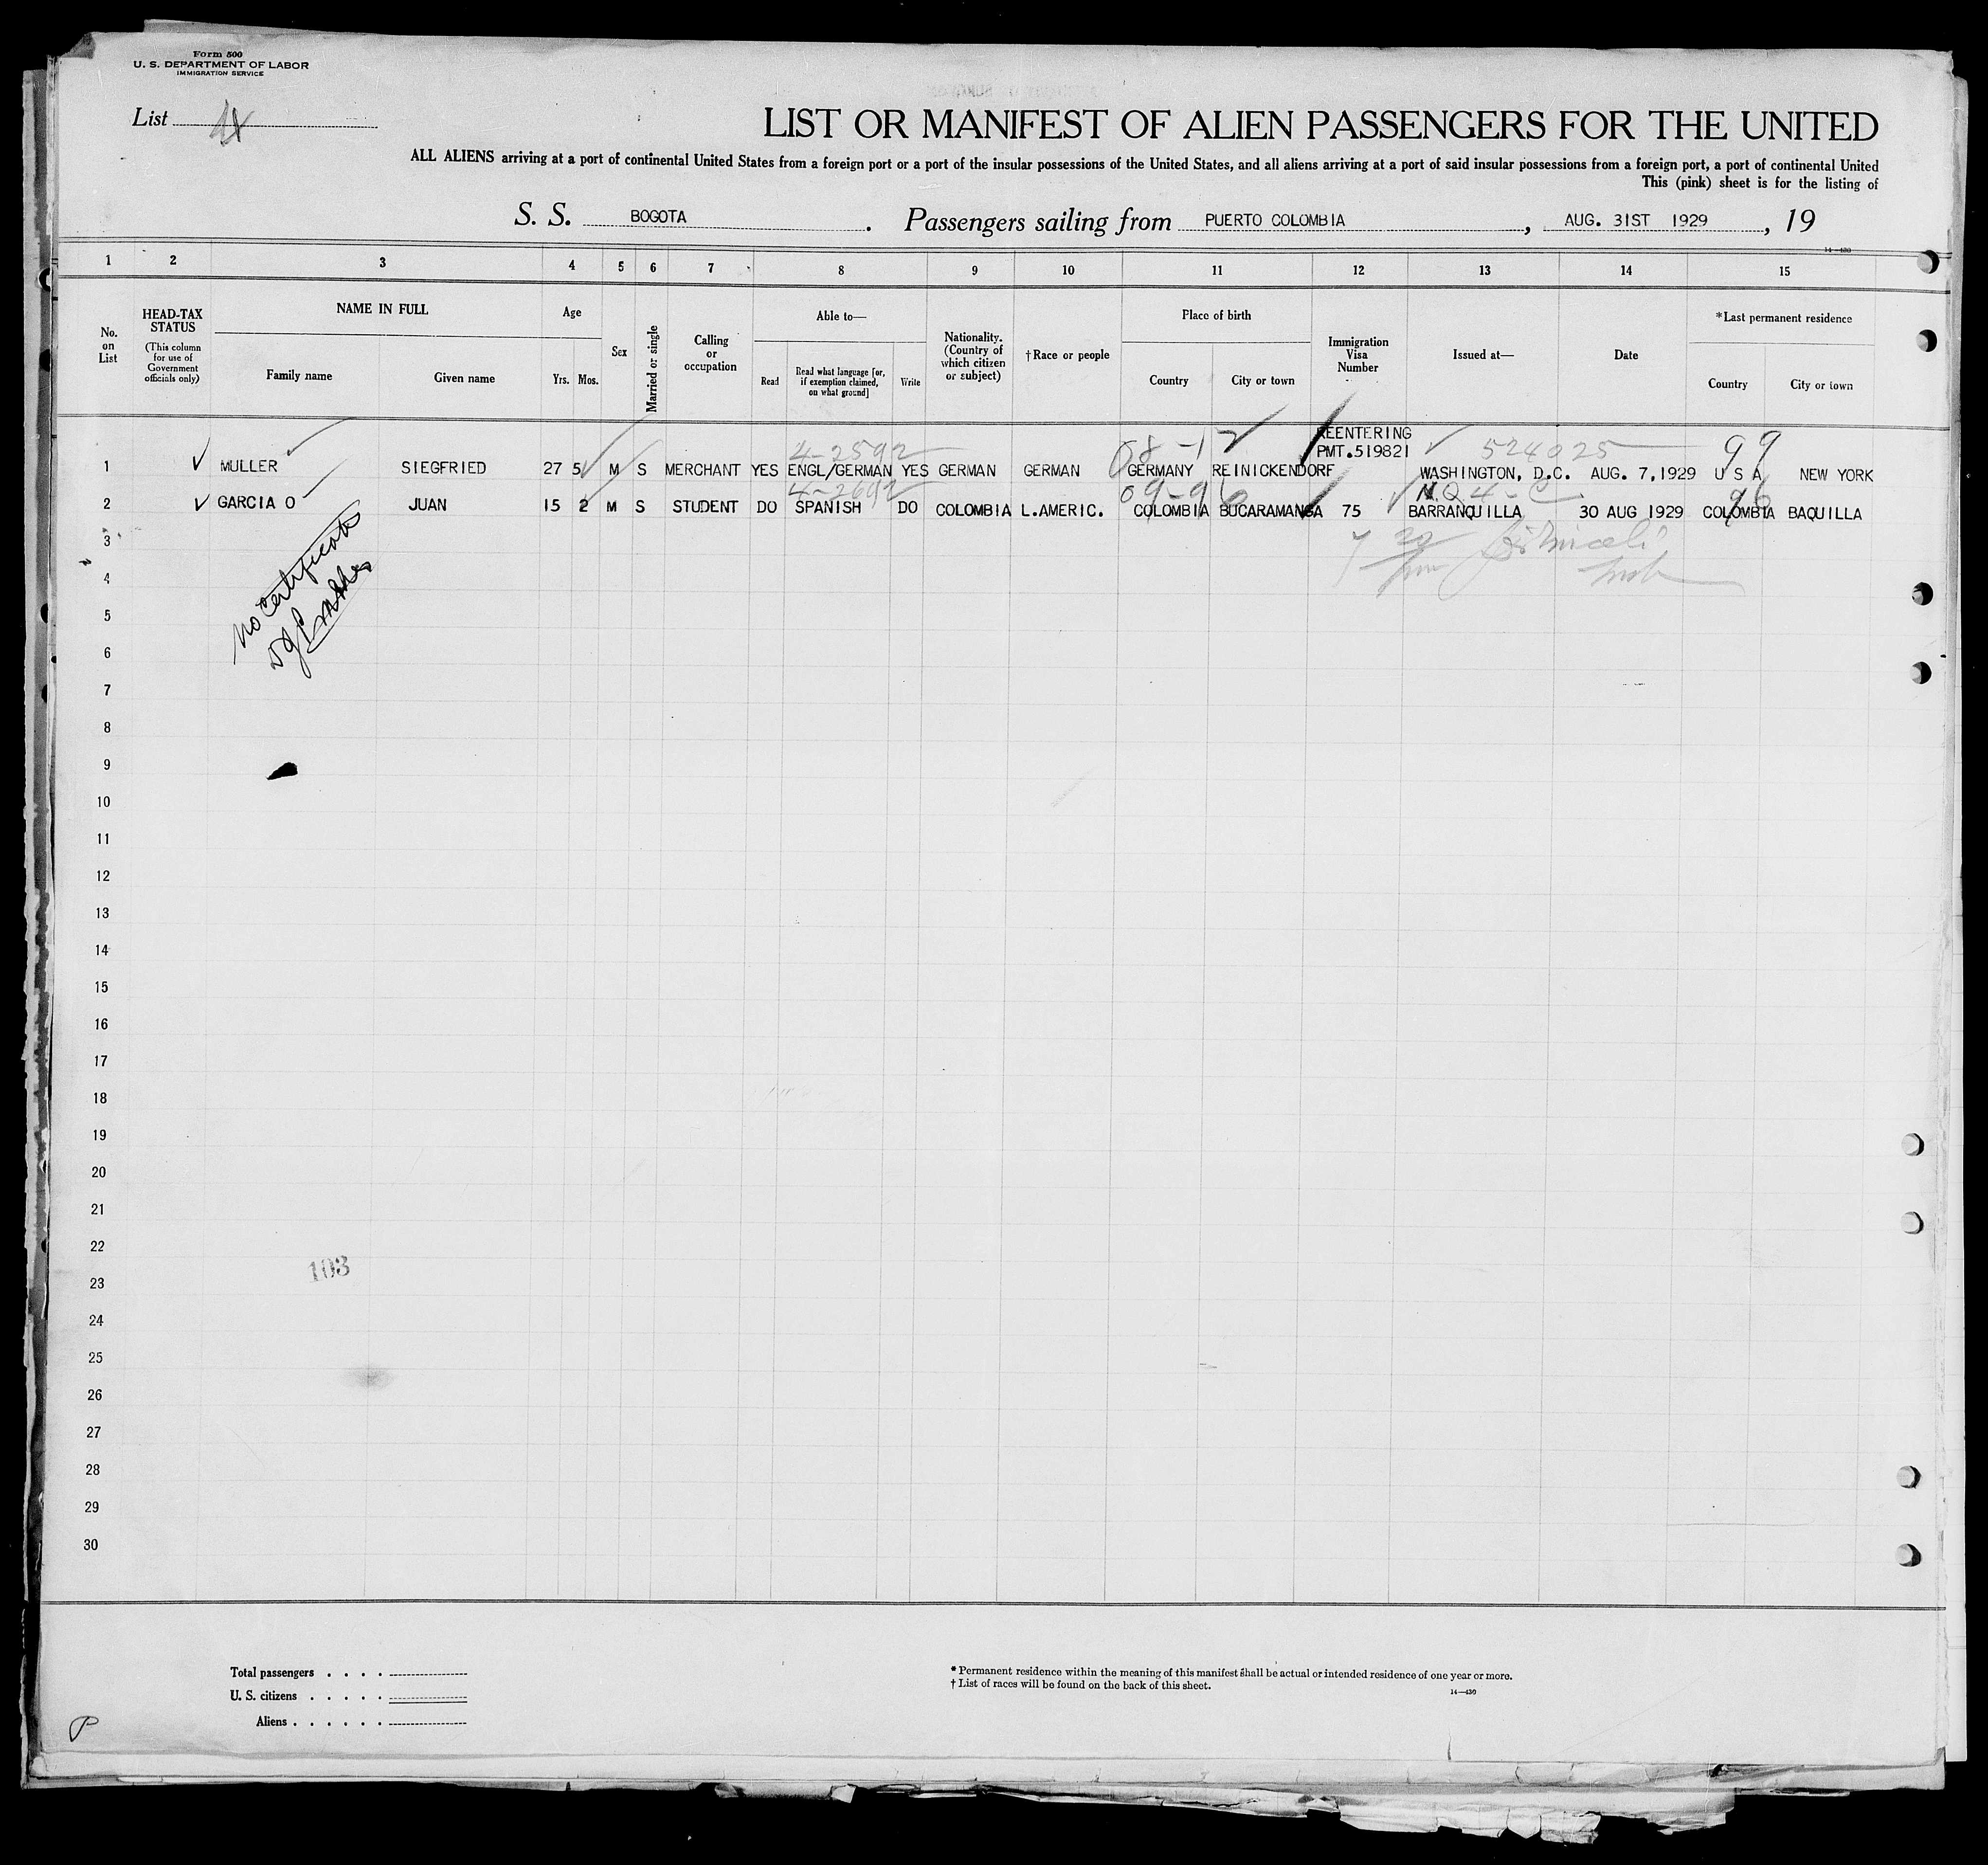 Form 500
U. S. DEPARTMENT OF LABOR
IMMIGRATION SERVICE
List
LIST OR MANIFEST OF ALIEN PASSENGERS FOR THE UNITED
ALL ALIENS arriving at a port of continental United States from a foreign port or a port of the insular possessions of the United States, and all aliens arriving at a port of said insular possessions from a foreign port, a port of continental United
This (pink) sheet is for the listing of
S. S. BOGOTA. Passengers sailing from PUERTO COLOMBIA, AUG. 31ST 1929, 19
14—430
1 2 3 4 5 6 7 8 9 10 11 12 13 14 15
No. on List
HEAD-TAX STATUS
(This column for use of Government officials only)
NAME IN FULL
Family name Given name
Age
Yrs. Mos.
Sex
Married or single
Calling or occupation
Able to—
Read
Read what language [or, if exemption claimed, on what ground]
Write
Nationality. (Country of which citizen or subject)
†Race or people
Place of birth
Country City or town
Immigration Visa Number
Issued at—
Date
*Last permanent residence
Country City or town
4-2592 08-12 REENTERING 524025 99
PMT.519821
1 MULLER SIEGFRIED 27 5 M S MERCHANT YES ENGL/GERMAN YES GERMAN GERMAN GERMANY REINICKENDORF WASHINGTON, D.C. AUG. 7,1929 U S A NEW YORK
4-2692 09-96 N.Q 4-C 96
2 GARCIA O JUAN 15 2 M S STUDENT DO SPANISH DO COLOMBIA L.AMERIC. COLOMBIA BUCARAMANGA 75 BARRANQUILLA 30 AUG 1929 COLOMBIA BAQUILLA
no certificate
3
4
5
6
7
8
9
10
11
12
13
14
15
16
17
18
19
20
21
22
103
23
24
25
26
27
28
29
30
Total passengers . . . .
U. S. citizens . . . . .
Aliens . . . . . .
* Permanent residence within the meaning of this manifest shall be actual or intended residence of one year or more.
† List of races will be found on the back of this sheet.
14—430
P